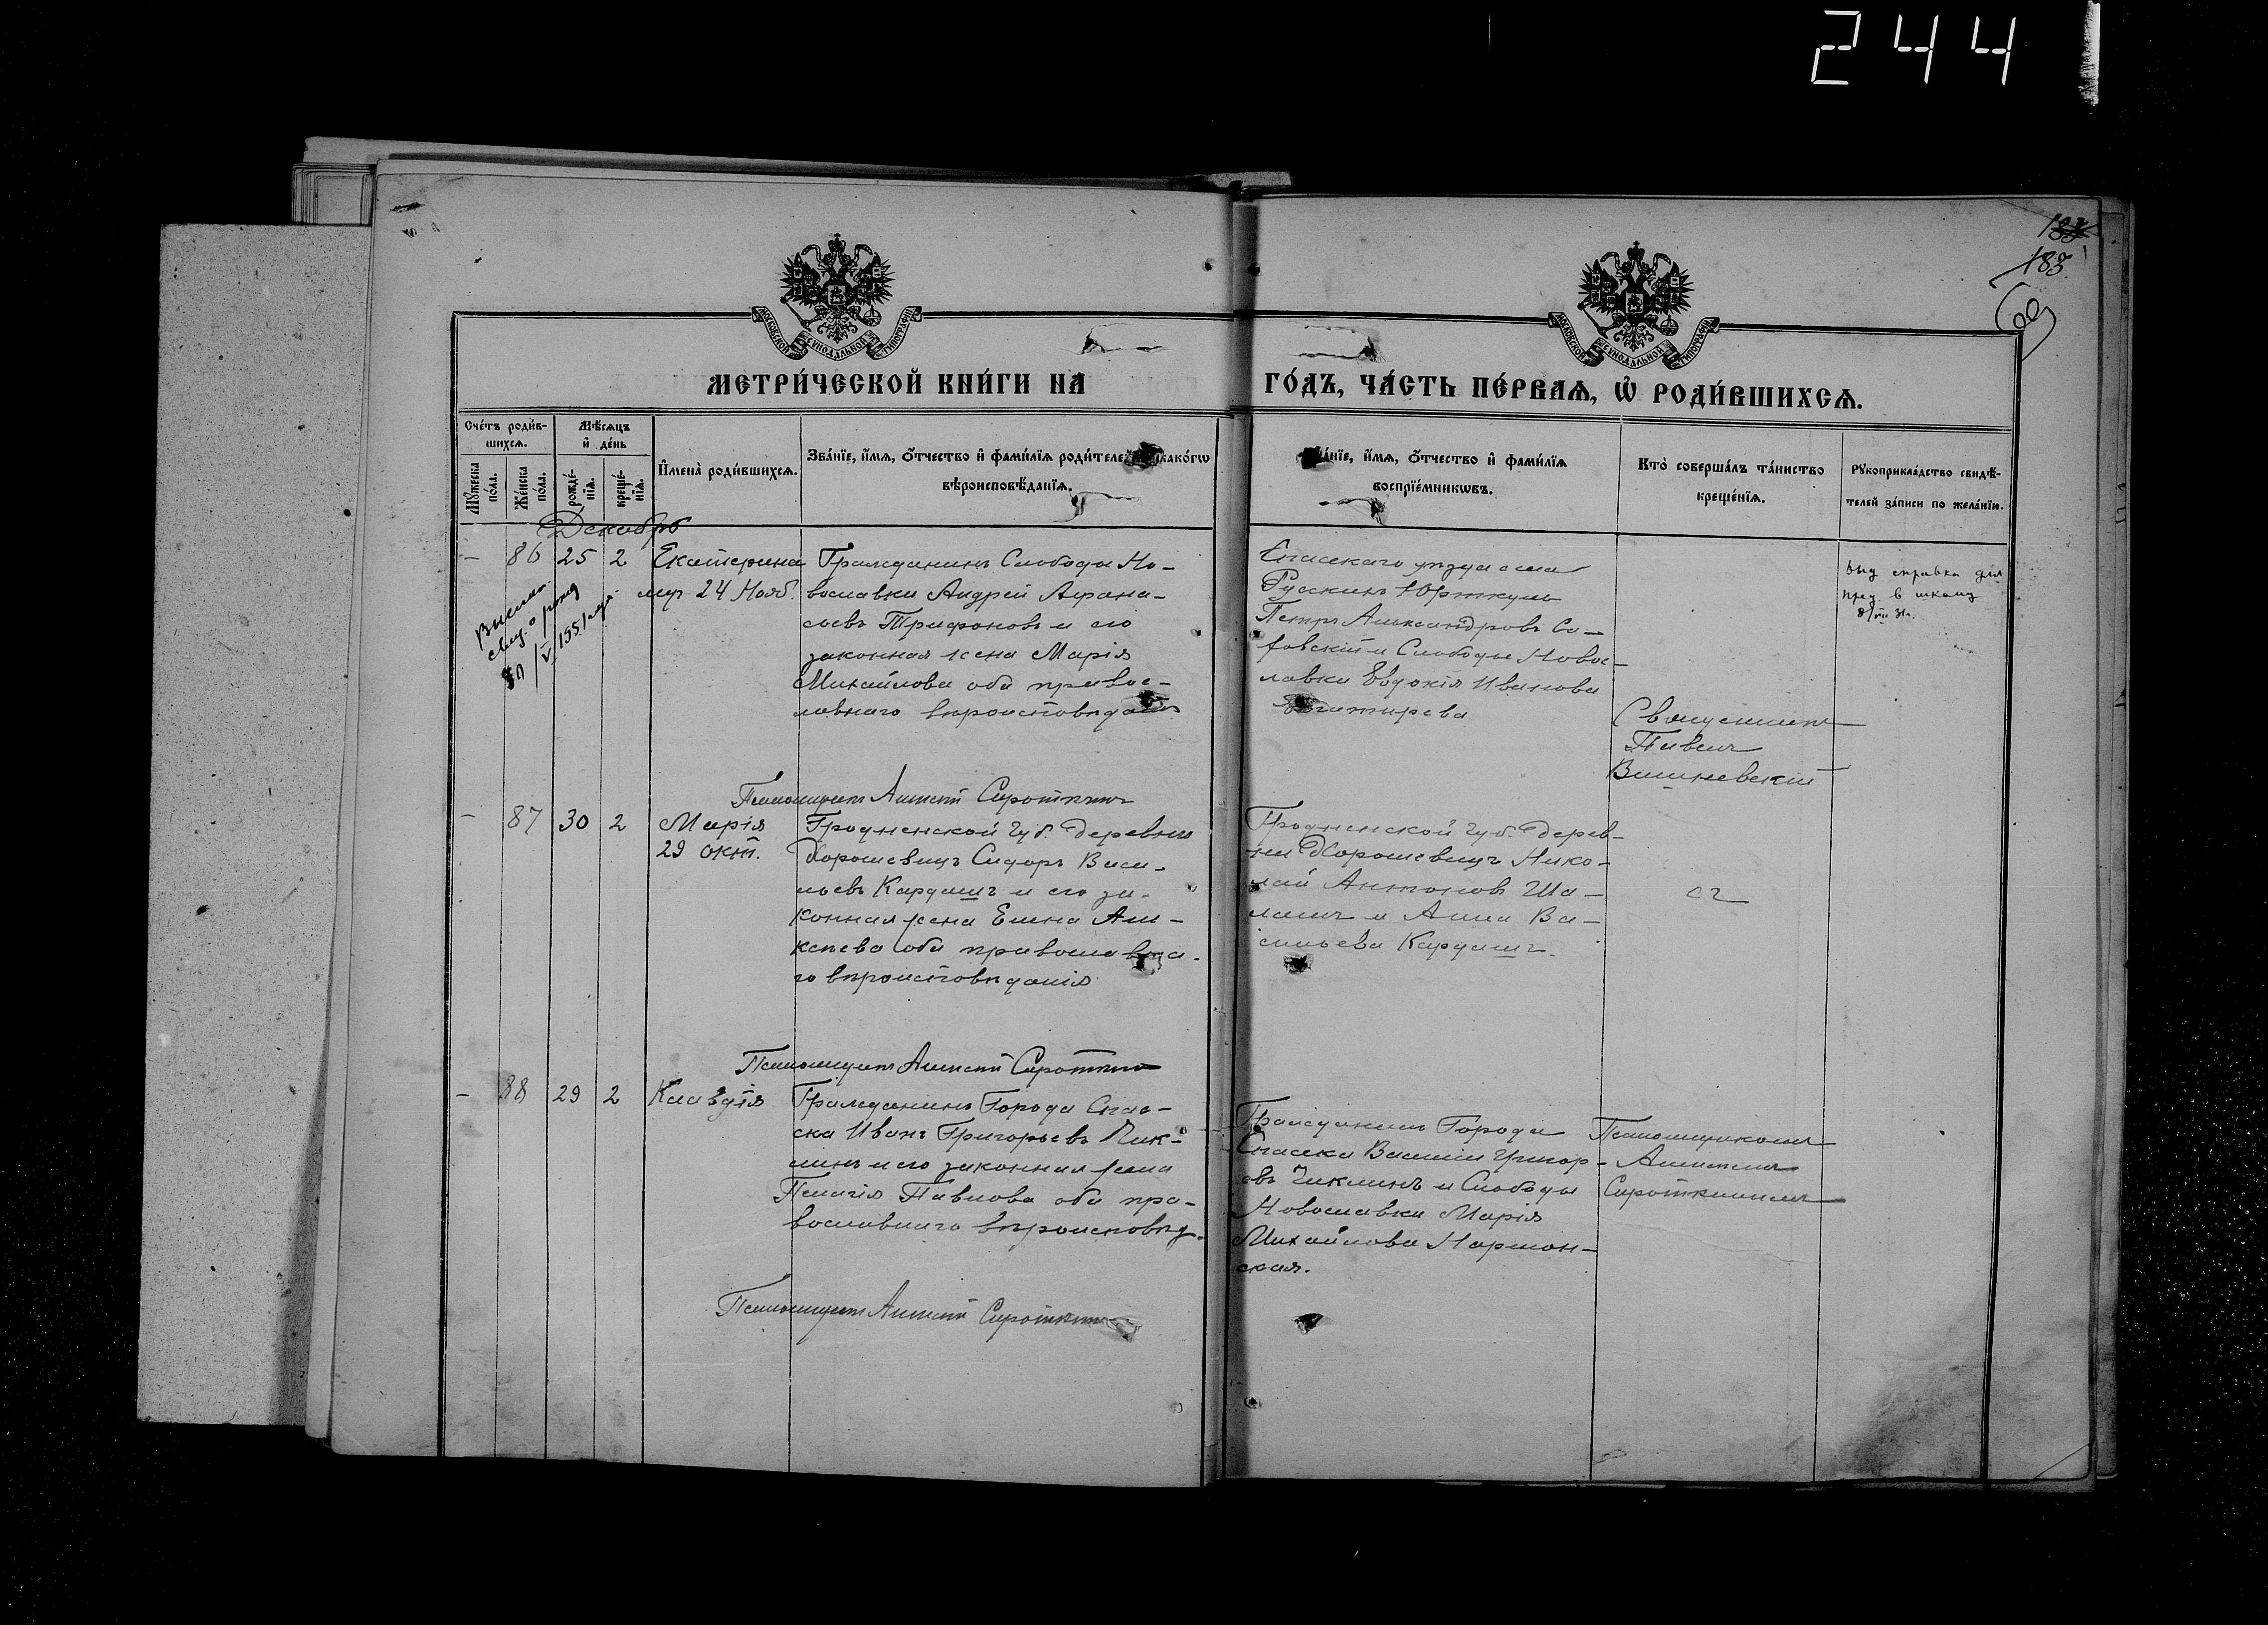 244
183
183
МОСКОВСКОЙ СУНОДАЛЬНОЙ ТИПОГРАФІИ
МОСКОВСКОЙ СУНОДАЛЬНОЙ ТИПОГРАФІИ
МЕТРИ́ЧЕСКОЙ КНИ́ГИ НА ГО́ДЪ, ЧА́СТЬ ПЕ́РВАѦ, Ѡ҆ РОДИ́ВШИХСѦ.
Сче́тъ роди́в-
шихсѧ.
Мꙋ́жеска по́ла.
Же́нска по́ла.
Мѣ́сѧцъ и҆ де́нь
рожде́-
нїѧ.
креще́-
нїѧ.
И҆мена̀ роди́вшихсѧ.
Зва́нїе, и҆́мѧ, ѻ҆́тчество и҆ фами́лїѧ роди́телей, како́гѡ
вѣроисповѣ́данїѧ.
и҆́мѧ, ѻ҆́тчество и҆ фами́лїѧ
воспрїе́мникѡвъ.
Кто̀ соверша́лъ та́инство
креще́нїѧ.
Рꙋкоприкла́дство свидѣ́-
телей за́писи по жела́нїю.
Декабрь
— 86 25 2 Екатерина
24 Нояб.
Гражданинъ Слободы Но-
вославки Андрей Афана-
сьевъ Трифоновъ и его
законная жена Марія
Михайлова оба правос-
лавнаго вѣроисповѣданія
Спасскаго уѣзда села
Русскихъ Юрткуль
Петръ Александровъ Со-
фовскій и Слободы Новос-
лавки Евдокія Иванова
Священникъ
Павелъ
Вишневскій
справка для
в школу
Псаломщикъ Алексѣй Сироткинъ
— 87 30 2 Марія
29 окт.
Гродненской Губ. деревни
Хорошевичъ Сидоръ Васи-
льевъ Кардашъ и его за-
конная жена Елена Але-
ксѣева оба православна-
го вѣроисповѣданія
Гродненской Губ. дерев-
ни Хорошевичъ Нико-
лай Антоновъ Ша-
и Анна Ва-
сильева Кардашъ.
Псаломщикъ Алексѣй Сироткинъ
— 88 29 2 Клавдія
Гражданинъ Города Спас-
ска Иванъ Григорьевъ Чик-
линъ и его законная жена
Пелагія Павлова оба пра-
вославнаго вѣроисповѣд.
Гражданинъ Города
Спасска Василій Григор-
евъ Чиклинъ и Слободы
Новославки Марія
Михайлова Нармон-
ская.
Псаломщикомъ
Алексѣемъ
Сироткинымъ
Псаломщикъ Алексѣй Сироткинъ